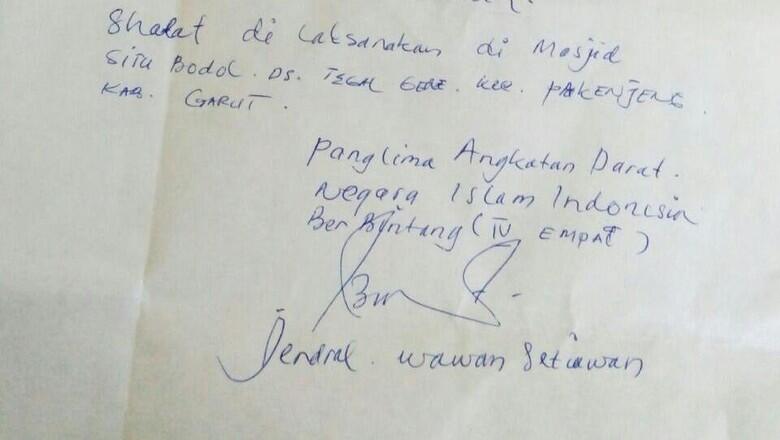 Shalat di Laksanakan di Masjid
Situ Bodol. DS. TEGAL GEDE. KEC. PAKENJENG.
KAB. GARUT.
Panglima Angkatan Darat.
Negara Islam Indonesia
Ber Bintang (IV EMPAT)
Jendral. Wawan Setiawan